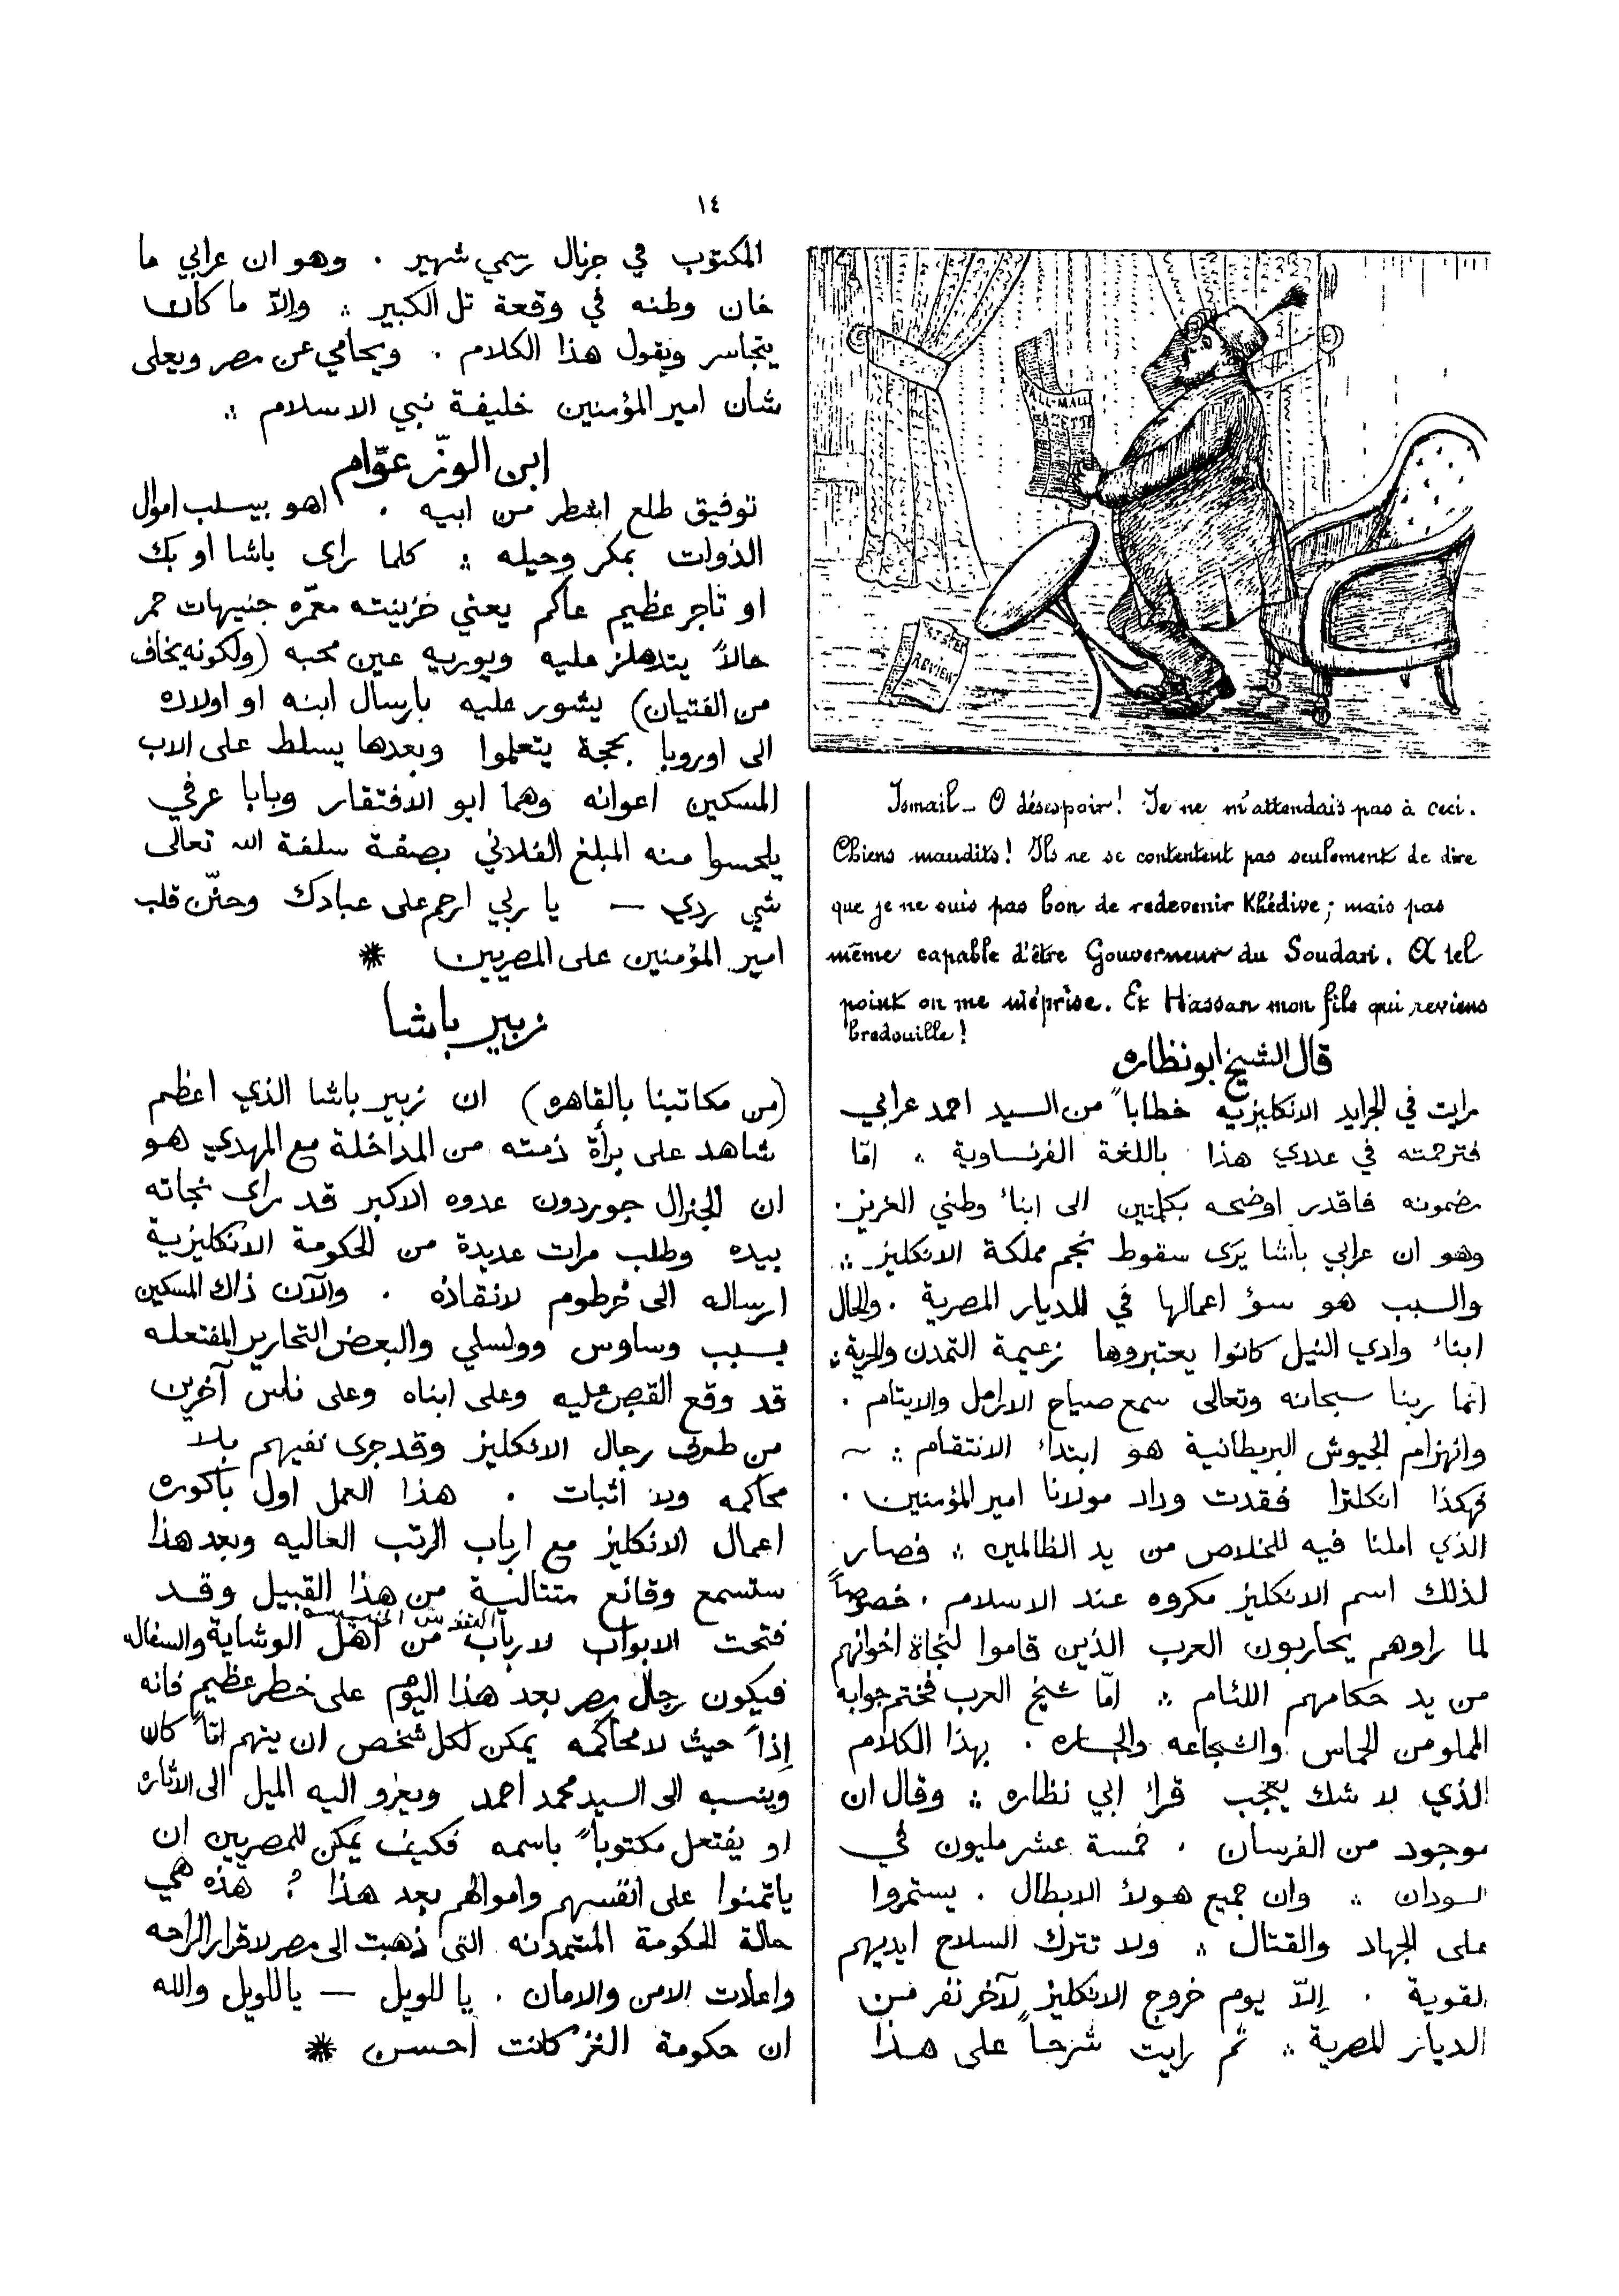 ١٤
ALL-MALL
GAZETTE
REVIEW
Ismaïl_ O désespoir! Je ne m'attendais pas à ceci.
Chiens maudits! Ils ne se contentent pas seulement de dire
que je ne suis pas bon de redevenir Khédive; mais pas
même capable d'être Gouverneur du Soudan. A tel
point on me méprise. Et Hassan mon fils qui reviens
bredouille!
قال الشيخ ابو نظاره
رايت في الجرايد الانكليزيه خطاباً من السيد احمد عرابي
فترجمته في عددي هذا باللغة الفرنساوية ∴ امّا
مضمونه فاقدر اوضحه بكلمتين الى ابناء وطني العزيز.
وهو ان عرابي باشا يرى سقوط نجم مملكة الانكليز ∴
والسبب هو سؤ اعمالها في الديار المصرية . والحال
ابناء وادي النيل كانوا يعتبروها زعيمة التمدن والحرية ∴
انما ربنا سبحانه وتعالى سمع صياح الارامل والايتام .
وانهزام الجيوش البريطانية هو ابتداء الانتقام ∴ ~
فهكذا انكلترا فقدت وداد مولانا امير المؤمنين .
الذي املنا فيه للخلاص من يد الظالمين ∴ فصار
لذلك اسم الانكليز مكروه عند الاسلام . خصوصاً
لما راوهم يحاربون العرب الذين قاموا لنجاة اخوانهم
من يد حكامهم اللئام ∴ امّا شيخ العرب فختم جوابه
المملو من الحماس والشجاعه والجساره . بهذا الكلام
الذي لا شك يعجب قراء ابي نظاره ∴ وقال ان
موجود من الفرسان . خمسة عشر مليون في
السودان ∴ وان جميع هولاء الابطال . يستمروا
على الجهاد والقتال ∴ ولا تترك السلاح ايديهم
القوية . إلاّ يوم خروج الانكليز لآخر نفر من
الديار المصرية ∴ ثم رايت شرحاً على هذا
المكتوب في جرنال رسمي شهير . وهو ان عرابي ما
خان وطنه في وقعة تل الكبير ∴ والاّ ما كان
يتجاسر ويقول هذا الكلام . ويحامي عن مصر ويعلى
شأن امير المؤمنين خليفة نبي الاسلام ∴
ابن الوزّ عوّام
توفيق طلع اشطر من ابيه . اهو بيسلب اموال
الذوات بمكر وحيله ∴ كلما راى باشا او بك
او تاجر عظيم عاكم يعني خزينته معمّره جنيهات حمر
حالاً يتدهلز عليه ويوريه عين محبه (ولكونه يخاف
من الفتيان) يشور عليه بارسال ابنه او اولاده
الى اوروبا بحجة يتعلموا وبعدها يسلط على الاب
المسكين اعوانه وهما ابو الافتقار وبابا عرفي
يلحسوا منه المبلغ الفلاني بصفة سلفة الله تعالى
شي ردي — يا ربي ارحم على عبادك وحنّن قلب
امير المؤمنين على المصريين *
زبير باشا
(من مكاتبنا بالقاهره) ان زبير باشا الذي اعظم
شاهد على برأة ذمته من المداخلة مع المهدي هو
ان الجنرال جوردون عدوه الاكبر قد راى نجاته
بيده وطلب مرات عديدة من الحكومة الانكليزية
ارساله الى خرطوم لانقاذه . والآن ذاك المسكين
بسبب وساوس وولسلي والبعض التحارير المفتعله
قد وقع القبض عليه وعلى ابناه وعلى ناس آخرين
من طرف رجال الانكليز وقد جرى نفيهم بلا
محاكمه ولا اثبات . هذا العمل اول باكورة
اعمال الانكليز مع ارباب الرتب العاليه وبعد هذا
ستسمع وقائع متتالية من هذا القبيل وقد
النفوس الخبيسه
فتحت الابواب لارباب من اهل الوشاية والسفاله
فيكون رجال مصر بعد هذا اليوم على خطر عظيم فانه
إذاً حيث لا محاكمه يمكن لكل شخص ان يتهم ايّاً كان
وينسبه الى السيد محمد احمد ويعزو اليه الميل الى الاثاره
او يفتعل مكتوباً باسمه فكيف يمكن للمصريين ان
ياتمنوا على انفسهم واموالهم بعد هذا ؟ هذه هي
حالة الحكومة المتمدنه التى ذهبت الى مصر لاقرار الراحه
واعادت الامن والامان . يا للويل — يا للويل والله
ان حكومة الغز كانت احسن *